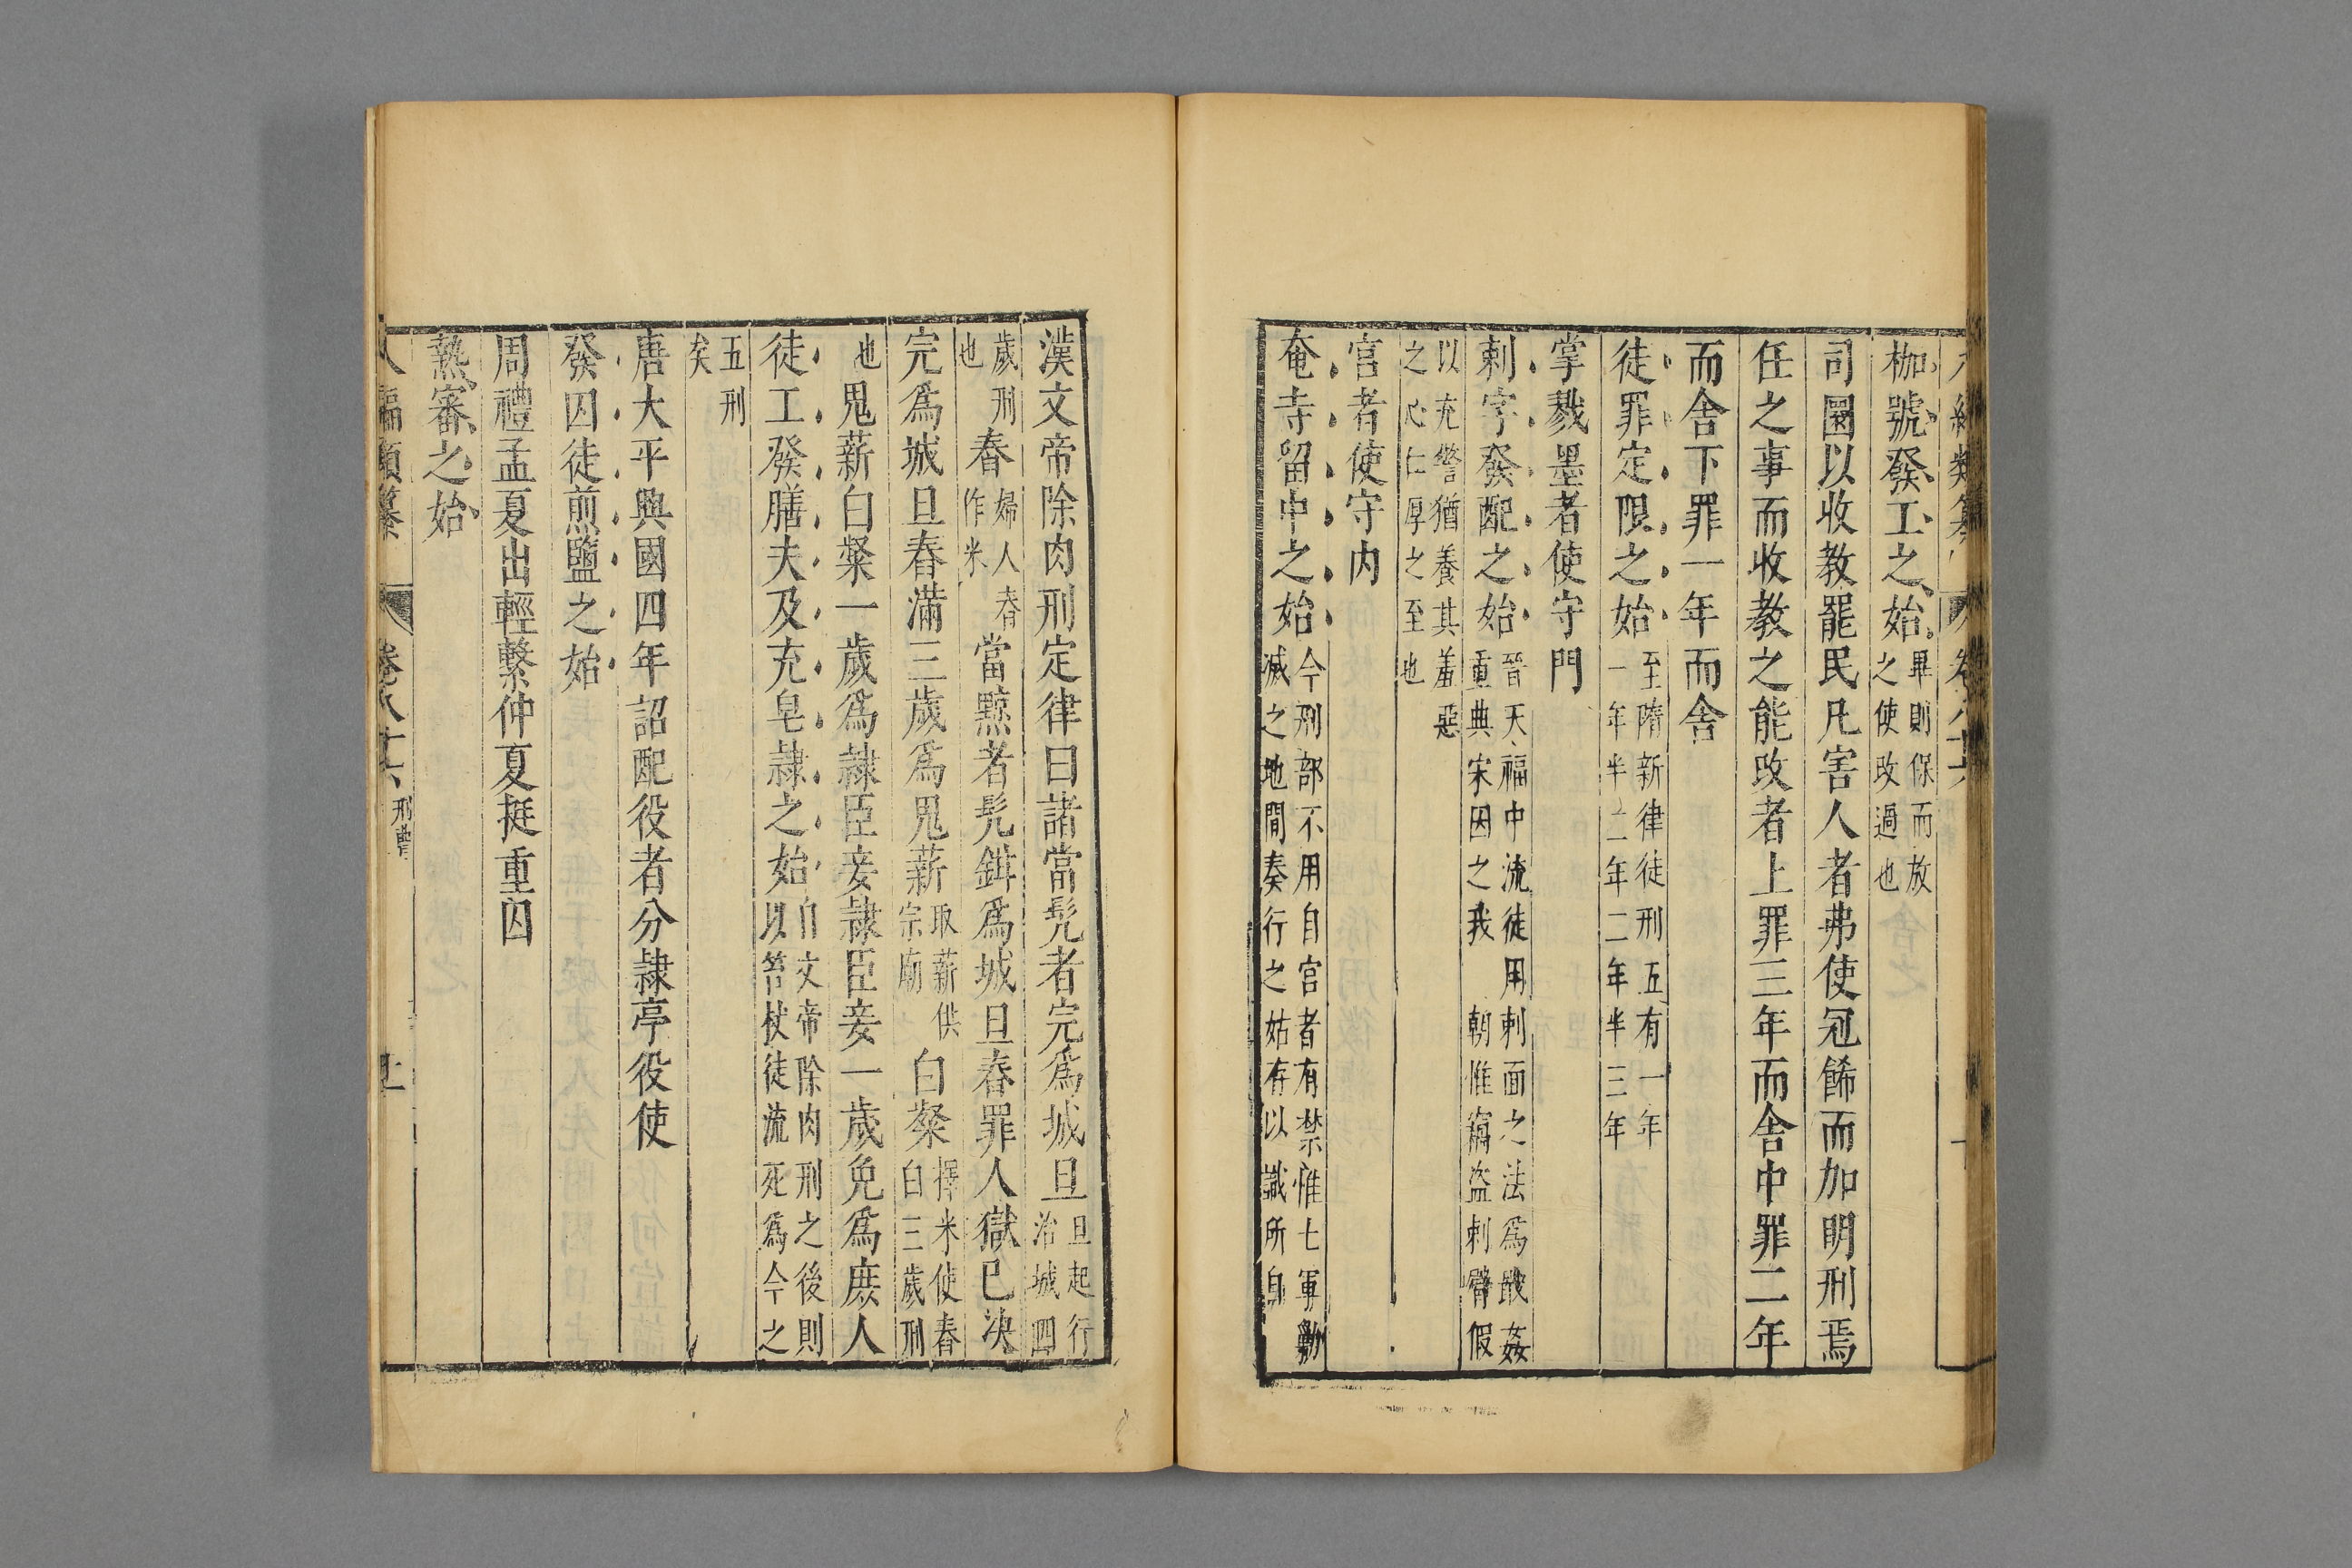 八編類纂 卷八十六
枷號發工之始畢則保而放之使改過也
司圜以收教罷民凡害人者弗使冠飾而加明刑焉
任之事而收教之能改者上罪三年而舍中罪二年
而舍下罪一年而舍
徒罪定限之始至隋新律徒刑五有一年一年半二年二年半三年
掌戮墨者使守門
刺字發配之始晉天福中流徒用刺面之法爲戢姦重典宋因之我 朝惟竊盜刺臂假
以充警猶養其羞惡之心仁厚之至也
宮者使守內
奄寺留中之始今刑部不用自宮者有禁惟七軍勳滅之地間奏行之姑存以識所自
漢文帝除肉刑定律曰諸當髡者完爲城旦旦起行治城四
歲刑也舂婦人舂作米當黥者髡鉗爲城旦舂罪人獄已決
完爲城旦舂滿三歲爲鬼薪取薪供宗廟白粲擇米使舂白三歲刑
也鬼薪白粲一歲爲隸臣妾隸臣妾一歲免爲庶人
徒工發膳夫及充皂隸之始自文帝除肉刑之後則以笞杖徒流死爲今之
五刑矣
唐大平興國四年詔配役者分隸亭役使
發囚徒煎鹽之始
周禮孟夏出輕繫仲夏挺重囚
熱審之始
八編類纂 卷八十六 刑曹